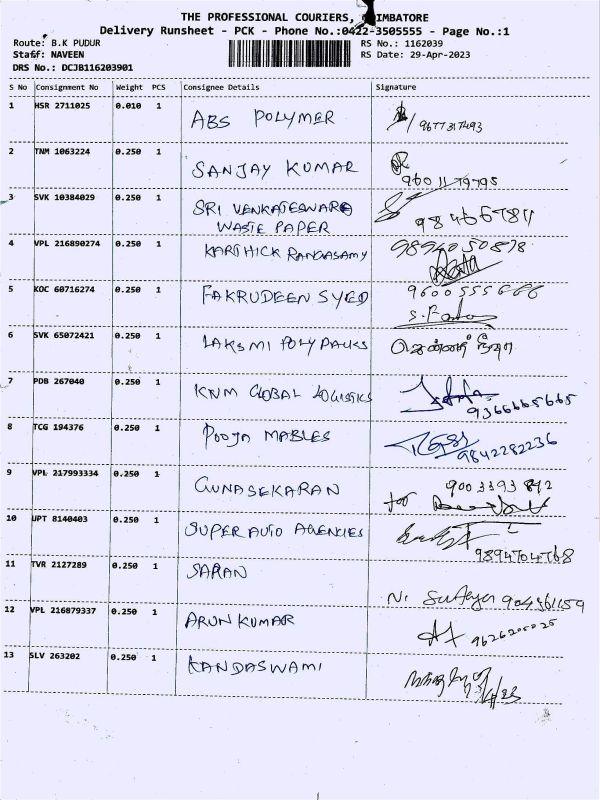 THE PROFESSIONAL COURIERS, COIMBATORE
Delivery Runsheet - PCK - Phone No.:0422-3505555 - Page No.:1
Route: B.K PUDUR
RS No.: 1162039
Staff: NAVEEN
RS Date: 29-Apr-2023
DRS No.: DCJB116203901
S No Consignment No Weight PCS Consignee Details Signature
1 HSR 2711025 0.010 1 ABS POLYMER 9677317493
2 TNM 1063224 0.250 1 SANJAY KUMAR 9601179795
3 SVK 10384029 0.250 1 SRI VENKATESWARA
WASTE PAPER
4 VPL 216890274 0.250 1 KARTHICK RANGASAMY 9894050878
5 KOC 60716274 0.250 1 FAKRUDEEN SYED 9600555666
S. Fa
6 SVK 65072421 0.250 1 LAKSMI POLY PACKS
7 PDB 267040 0.250 1 KNM GLOBAL LOGISTICS 9366665665
8 TCG 194376 0.250 1 POOJA MABLES 9842282236
9 VPL 217993334 0.250 1 GUNASEKARAN 9003393812
for
10 UPT 8140403 0.250 1 SUPER AUTO AGENCIES 9894704768
11 TVR 2127289 0.250 1 SARAN
12 VPL 216879337 0.250 1 ARUN KUMAR 9626205025
13 SLV 263202 0.250 1 KANDASWAMI